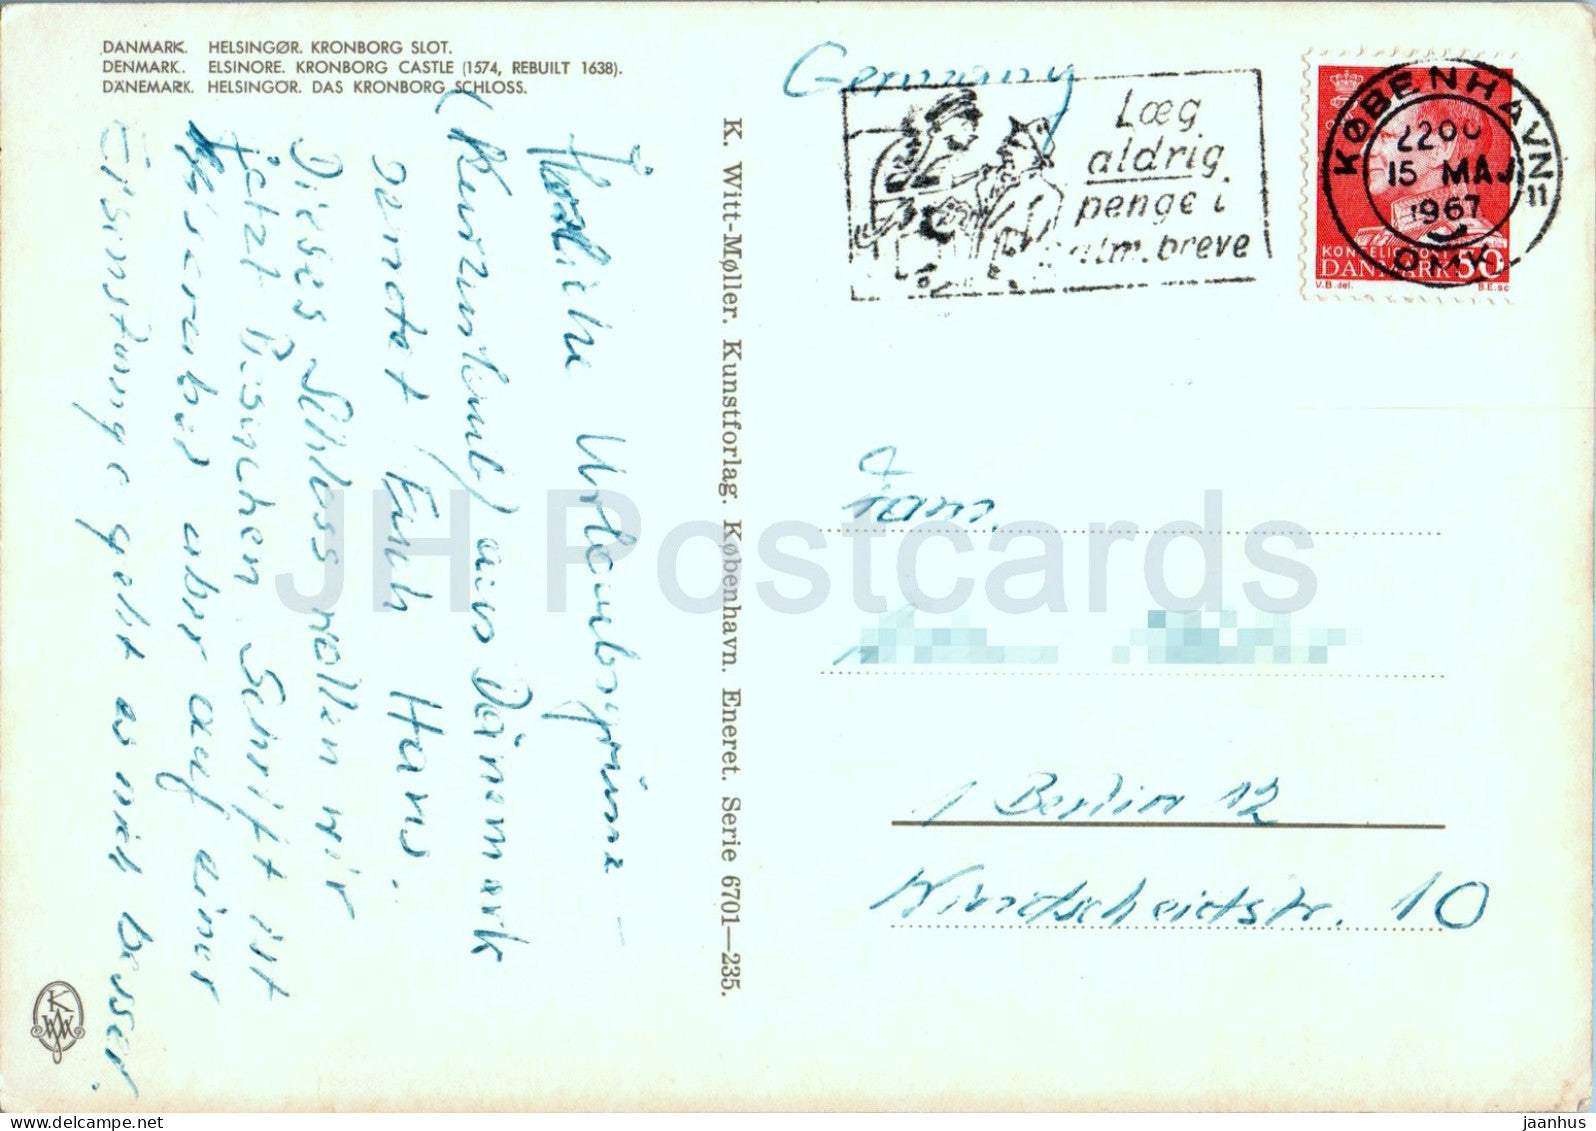 DANMARK. HELSINGØR. KRONBORG SLOT.
DENMARK. ELSINORE. KRONBORG CASTLE (1574, REBUILT 1638).
DÄNEMARK. HELSINGÖR. DAS KRONBORG SCHLOSS.
Germany
Læg
aldrig
penge i
alm. breve
KØBENHAVN
2200
15 MAJ
1967
OMK
11
KONGELIG
DANMARK 50
V.B del.
B.E.sc
Herzliche Urlaubsgrüsse
(Kurzurlaub) aus Dänemark
sendet Euch Hans.
Dieses Schloss wollen wir
jetzt besuchen. Schrift ist
miserabel aber auf einer
geht es nicht besser.
K. Witt-Møller. Kunstforlag. København. Eneret. Serie 6701—235.
Fam.
1 Berlin 12
Windscheidstr. 10
KWM
JH Postcards
jaanhus / delcampe.net